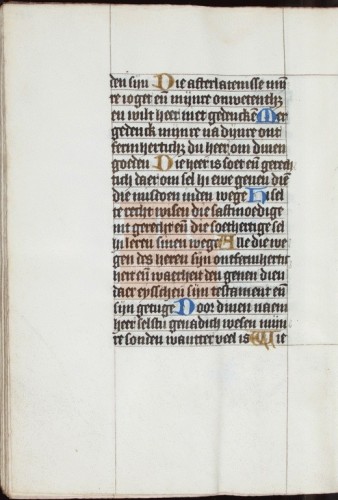 den sijn Die afterlatenisse mijn
re ioget eñ mijnre onwetenth3
en wilt heer niet gedencken Mer
gedenck mijnre na dijnre ont
fermhertich3 du heer om dinen
goeden Die heer is soet eñ gerech
tich daer om sel hi ewe geuen dien
die misdoen inden wege Hi sel
te recht wisen die saftmoedige
int gerecht eñ die soethertige sel
hi leren sinen wege Alle die we
gen des heren sijn ontfermherti
heit eñ waerheit den genen dien
daer eysschen sijn testament eñ
sijn getuge Door dinen naem
heer selstu genadich wesen mijn
re sonden want ter veel is Wie